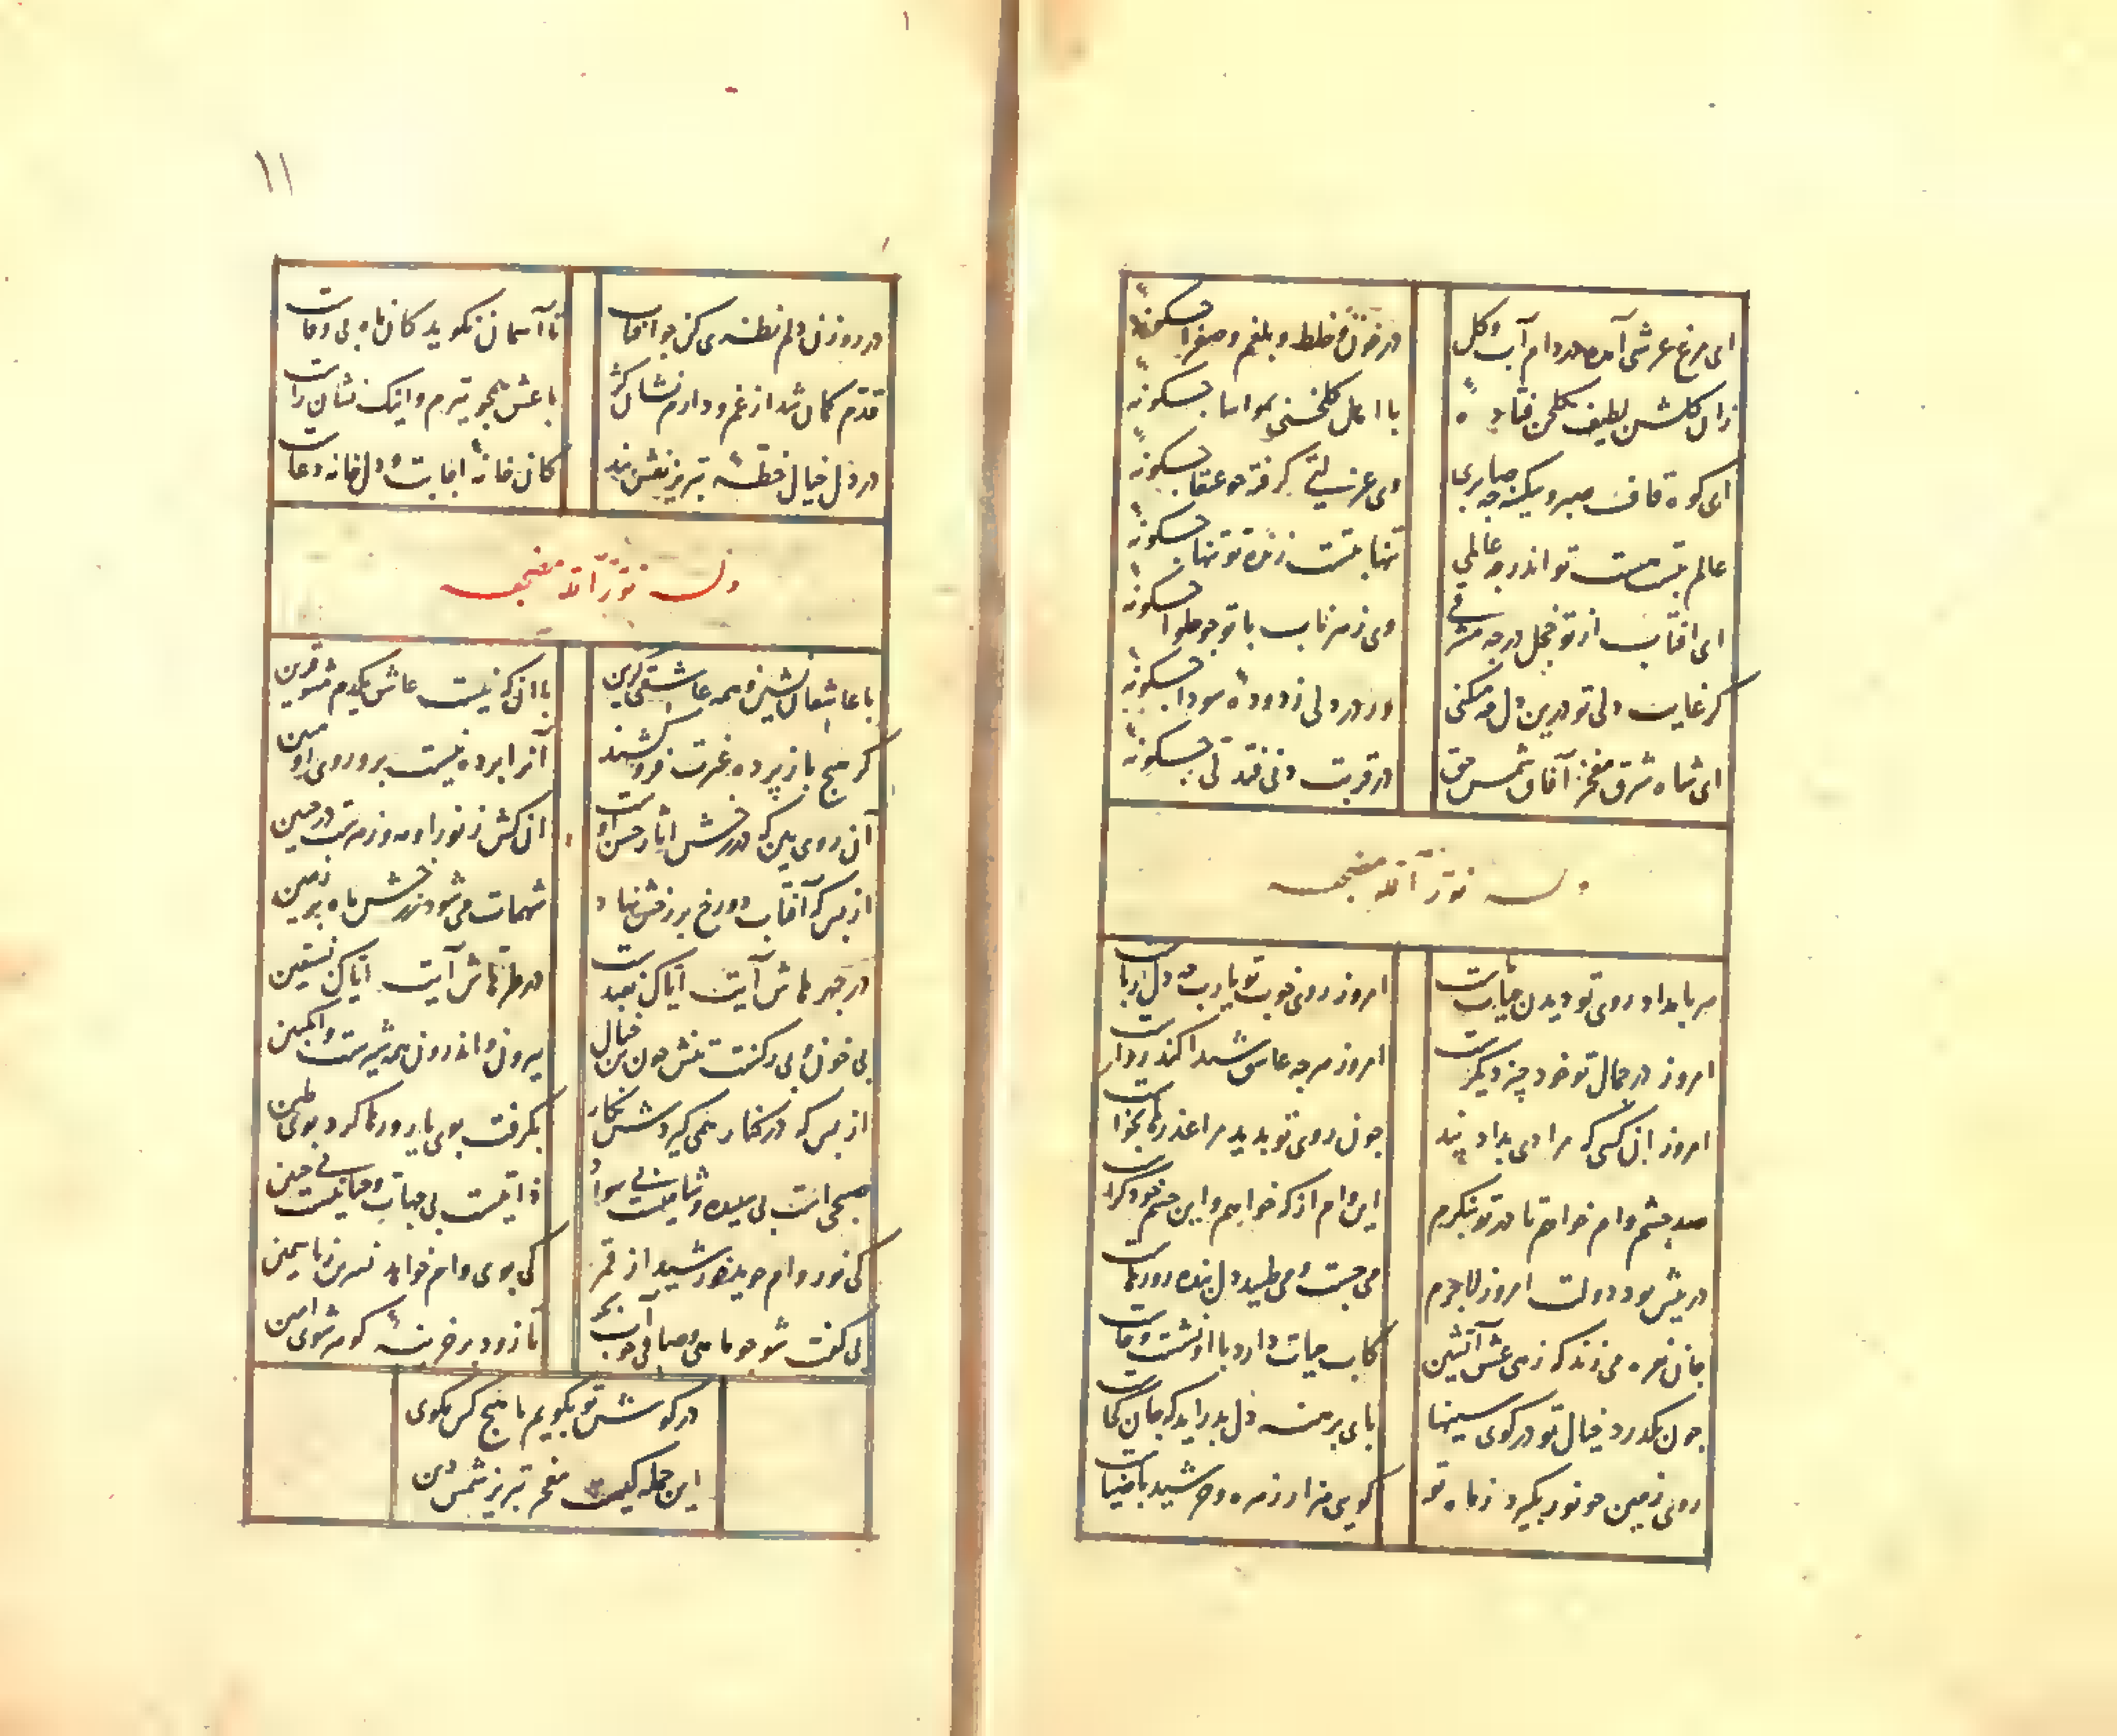 ای مرغ عرشی آمده در دام آب و گل در خون و خلط و بلغم و صفرا چگونهٔ
زان گلشن لطیف بگلخن فتادهٔ با اهل گلخنی بمواسا چگونهٔ
ای کوه قاف صبر و سکینه چه صابری وی عزلتی گرفته چو عنقا چگونهٔ
عالم بتست قایم تو اندر چه عالمی تنها بتست زنده تو تنها چگونهٔ
ای افتاب از تو خجل در چه مشرقی وی زهر ناب با تو چو حلوا چگونهٔ
گر غایت دلی تو درین دل چه میکنی ور در دلی ز دودهٔ سودا چگونهٔ
ای شاه شرق مفخر آفاق شمس حق در قربت دنی فتدلی چگونهٔ
وله نور الله مضجعه
هر بامداد روی تو دیدن حیات ماست امروز روی خوب تو یا رب چه دل رباست
امروز در جمال تو خود چیز دیگرست امروز هرچه عاشق شیدا کند رواست
امروز آن کسی که مرا دی بداد پند چون روی تو بدید مرا عذرها بخواست
صد چشم وام خواهم تا در تو بنگرم این وام از که خواهم و این چشم خود کراست
در پیش بود دولت امروز لاجرم می جست و می طپید دل بنده روزهاست
جان نعره می زند که زهی عشق آتشین کآب حیات دارد با او نشست و خاست
چون بگذرد خیال تو در کوی سینها پای برهنه دل بدر آید که جان کجاست
روی زمین چو نور بگیرد ز ماه تو گویی هزار زهره و خورشید بر سماست
۱۱
در روزن دلم نظری کن چو آفتاب تا آسمان نگوید کان ماه بی وفاست
قدم کمان شد از غم و دادم نشان کژ با عشق همچو تیرم و اینک نشان راست
در دل خیال خطهٔ تبریز نقش بند کان خانهٔ اجابت و دل خانه دعاست
وله نور الله مضجعه
با عاشقان نشین و همه عاشقی گزین با آن که نیست عاشق یکدم مشو قرین
گر هیچ باز پرده غیرت فرو کشند آنرا که پرده نیست برو روی او ببین
آن روی بین که در رخش آثار حسن اوست آن کش ز نور او مه و زهرست در جبین
از بس که آفتاب دو رخ بر رخش نهاد شهمات می شود ز رخش ماه بر زمین
در چهرهاش آیت ایاک نعبدست در طرهاش آیت ایاک نستعین
بی خون و بی رگست تنش چون تن خیال بیرون و اندرون همه شیرست و انگبین
از بس که در کنار همی گیردش نگار بگرفت بوی یار و رها کرد بوی طین
صبحی است بی سپیده و شامیست بی سواد ذاتیست بی جهات و حیاتیست بی حنین
کی نور وام جوید خورشید از قمر کی بوی وام خواهد نسرین ز یاسمین
بی گفت شو چو ماهی و صافی چو آب بحر تا زود بر خزینهٔ گوهر شوی امین
در گوش تو بگویم با هیچ کس مگوی
این جمله کیست مفخر تبریز شمس دین